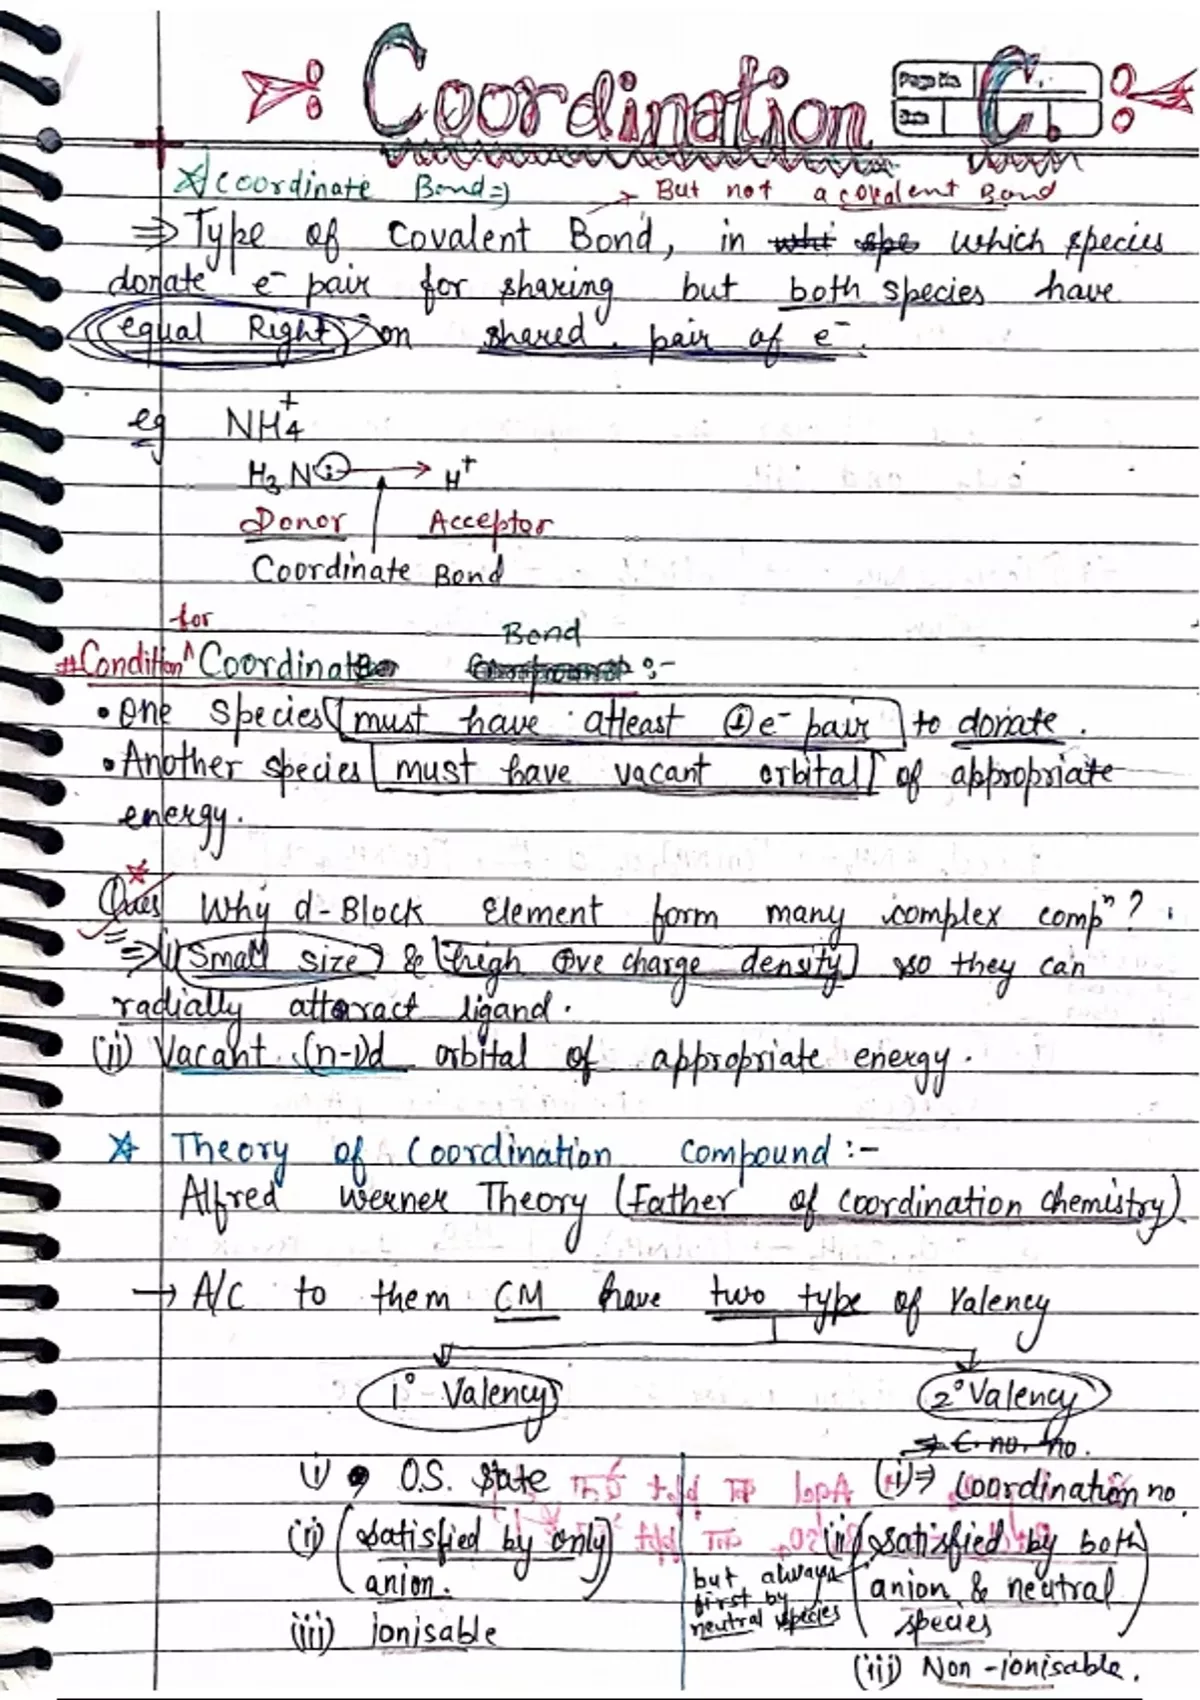 Coordination C.
Page No.
Date
Coordinate Bond ⇒ → But not a covalent Bond
⇒ Type of Covalent Bond, in which species
donate e⁻ pair for sharing but both species have
equal Right on shared pair of e⁻.
eg NH₄⁺
H₃N: → H⁺
Donor Acceptor
Coordinate Bond
#Condition for Coordinate Bond :-
• One species must have atleast 1 e⁻ pair to donate.
• Another species must have vacant orbital of appropriate
energy.
Ques Why d-Block Element form many complex compⁿ?
⇒ (i) Small size & high +ve charge density so they can
radially attaract ligand.
(ii) Vacant (n-1)d orbital of appropriate energy.
☆ Theory of Coordination Compound :-
Alfred Werner Theory (Father of coordination chemistry)
→ A/C to them CM have two type of Valency
1°-Valency 2° Valency
⇒ C. no. no.
(i) O.S. State (i) ⇒ Coordination no.
(ii) (satisfied by only anion.) (ii) (satisfied by both anion & neutral species
but always first by neutral species
(iii) ionisable
(iii) Non-ionisable.